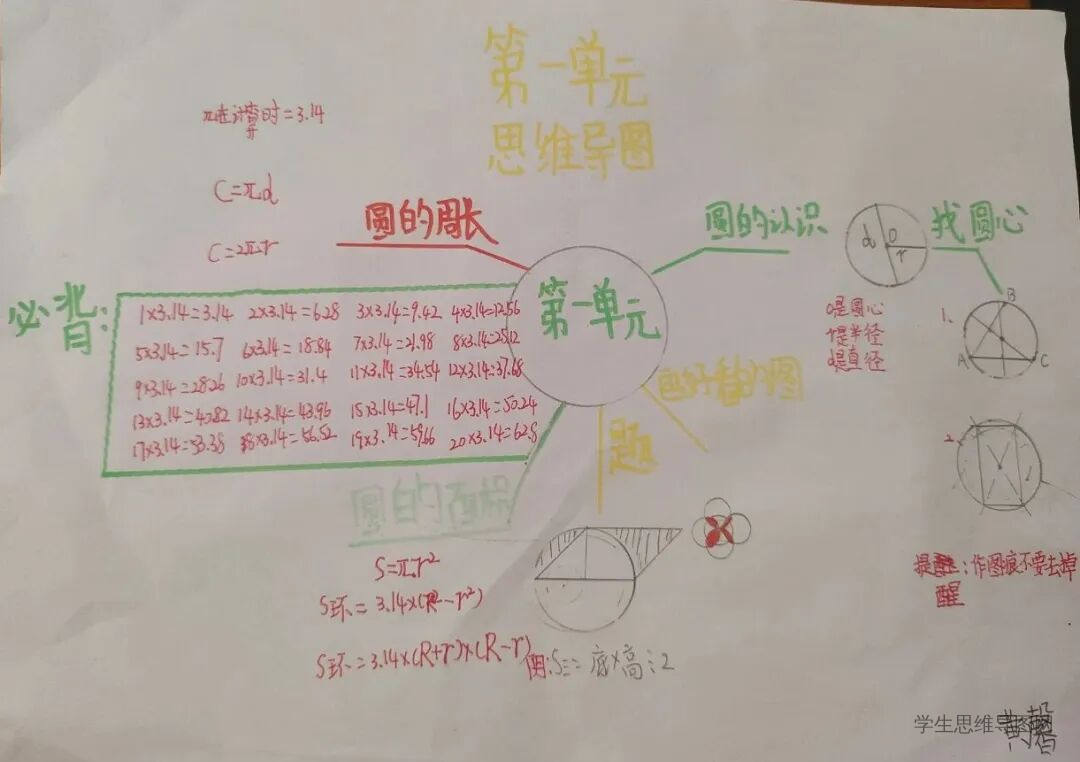 第一单元
思维导图
π在计算时=3.14
C=πd
C=2πr
圆的周长
圆的认识
找圆心
d
O
r
o是圆心
r是半径
d是直径
1、
B
A
C
2、
提醒：作图痕不要去掉
醒
第一单元
必背：
1×3.14=3.14 2×3.14=6.28 3×3.14=9.42 4×3.14=12.56
5×3.14=15.7 6×3.14=18.84 7×3.14=21.98 8×3.14=25.12
9×3.14=28.26 10×3.14=31.4 11×3.14=34.54 12×3.14=37.68
13×3.14=40.82 14×3.14=43.96 15×3.14=47.1 16×3.14=50.24
17×3.14=53.38 18×3.14=56.52 19×3.14=59.66 20×3.14=62.8
画好看的图
题
圆的面积
S=πr²
S环=3.14×(R-r²)
S环=3.14×(R+r)×(R-r)
阴:S三=底×高÷2
学生思维导图网